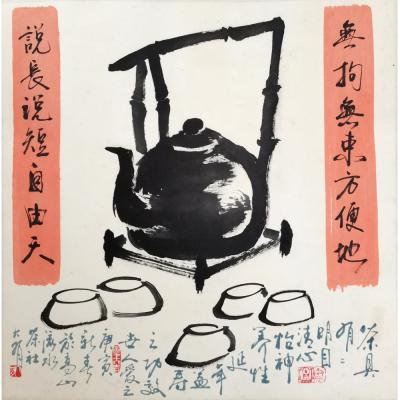 無拘無束方便地
說長說短自由天
茶具
明目
清心
怡神
養性
延年
益壽
之功效
世人愛之
庚寅
新春
於高山
流水
茶社